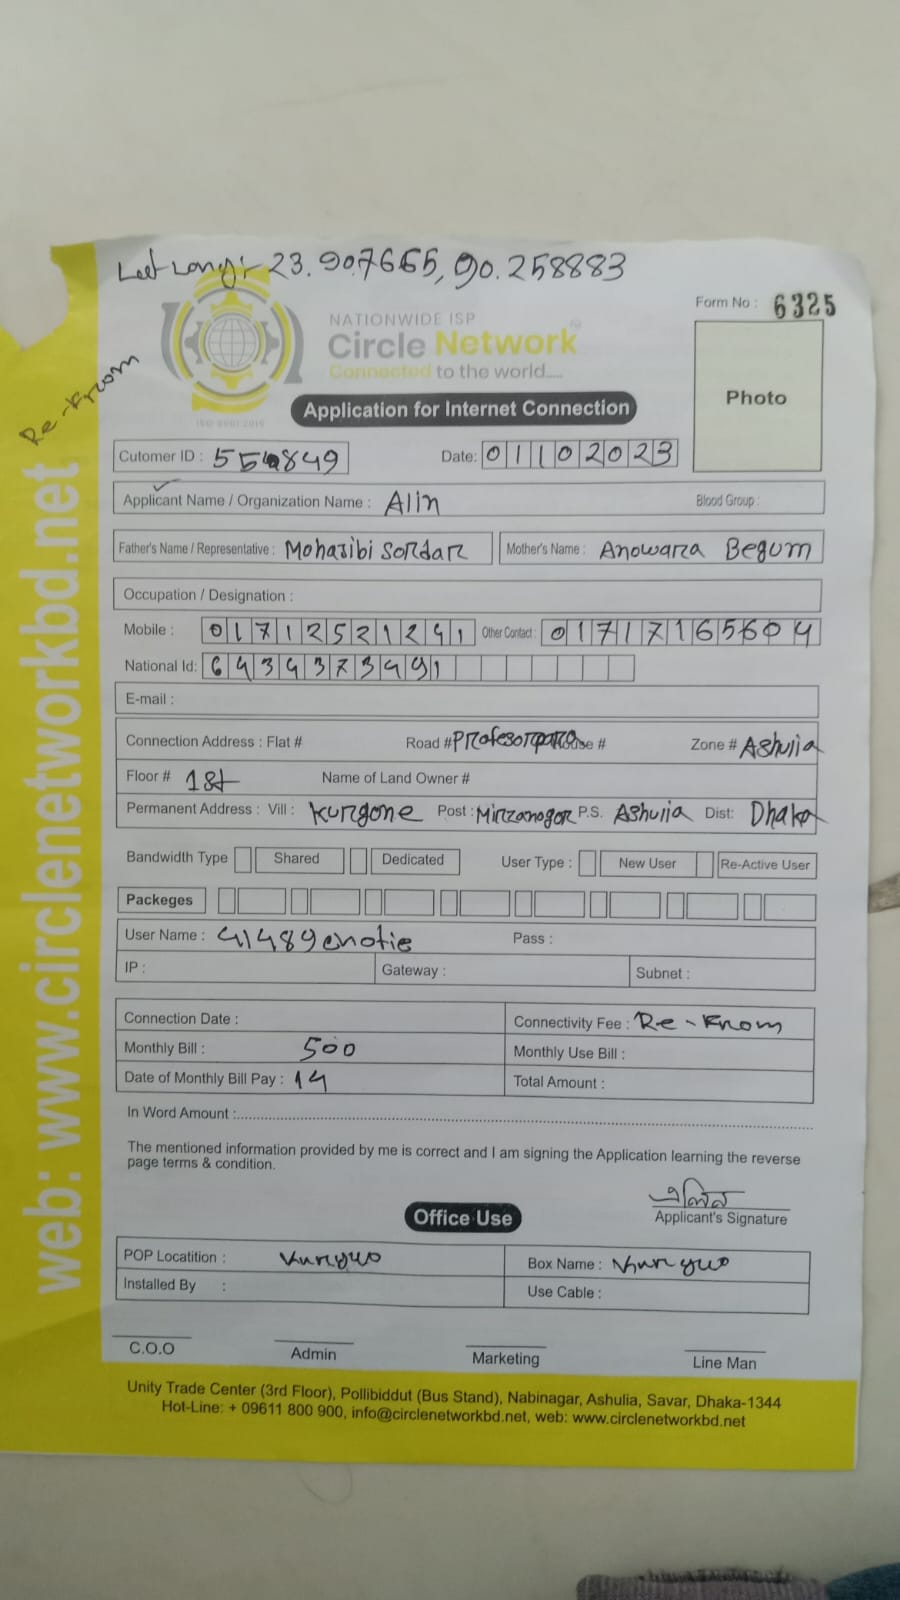 Lat Long:- 23.907665, 90.258883
Form No : 6325
NATIONWIDE ISP
Circle Network
Connected to the world.....
ISO 9001:2015
Re-From
Photo
Application for Internet Connection
Cutomer ID : 554849 Date: 01102023
Applicant Name / Organization Name : Alin Blood Group :
Father's Name / Representative : Mohasibi Sordar Mother's Name : Anowara Begum
Occupation / Designation :
Mobile : 01712521241 Other Contact : 01717165604
National Id: 6434373491
E-mail :
Connection Address : Flat # Road # Profesorpara House # Zone # Ashulia
Floor # 1st Name of Land Owner #
Permanent Address : Vill : Kurgone Post : Mirzanogor P.S. Ashulia Dist: Dhaka
Bandwidth Type Shared Dedicated User Type : New User Re-Active User
Packeges
User Name : 41489enotie Pass :
IP : Gateway : Subnet :
Connection Date : Connectivity Fee : Re-From
Monthly Bill : 500 Monthly Use Bill :
Date of Monthly Bill Pay : 14 Total Amount :
In Word Amount :
The mentioned information provided by me is correct and I am signing the Application learning the reverse
page terms & condition.
এলিন
Office Use Applicant's Signature
POP Locatition : Box Name :
Installed By : Use Cable :
C.O.O Admin Marketing Line Man
Unity Trade Center (3rd Floor), Pollibiddut (Bus Stand), Nabinagar, Ashulia, Savar, Dhaka-1344
Hot-Line: + 09611 800 900, info@circlenetworkbd.net, web: www.circlenetworkbd.net
web: www.circlenetworkbd.net